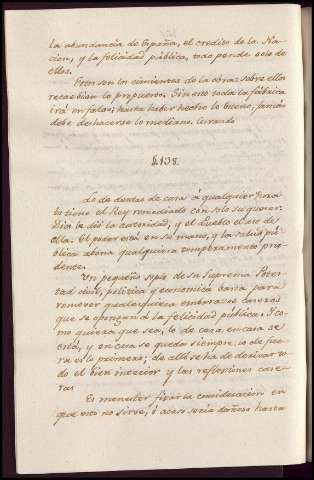 la abundancia de España, el credito de la Na-
cion, y la felicidad pública, todo pende solo de
ellos.
Estos son los cimientos de la obra: sobre ellos
recae bien lo propuesto. Si no toda la fábrica
irá en falso; hasta haber hecho lo bueno, jamás
debe deshacerse lo mediano.
§.138.
Lo de deudas de cara á qualquier
lo tiene el Rey remediado con solo su querer.
Dios le dió la autoridad, y el Pueblo el uso de
ella. El poder está en su mano, y la salud pú-
blica abona qualquiera temperamento pru-
dente.
Un pequeño soplo de su Suprema Potes-
tad civil, política y economica basta para
remover qualesquiera embarazos caseros
que se opongan á la felicidad pública. Y co-
mo quiera que sea, lo de casa en casa se
está, y en casa se queda siempre: lo de fue-
ra es lo primero; de allí se ha de derivar to-
do el bien interior y las reflexiones case-
ras
Es menester fixar la consideracion en
que esto no sirve, ó acaso seria dañoso hasta